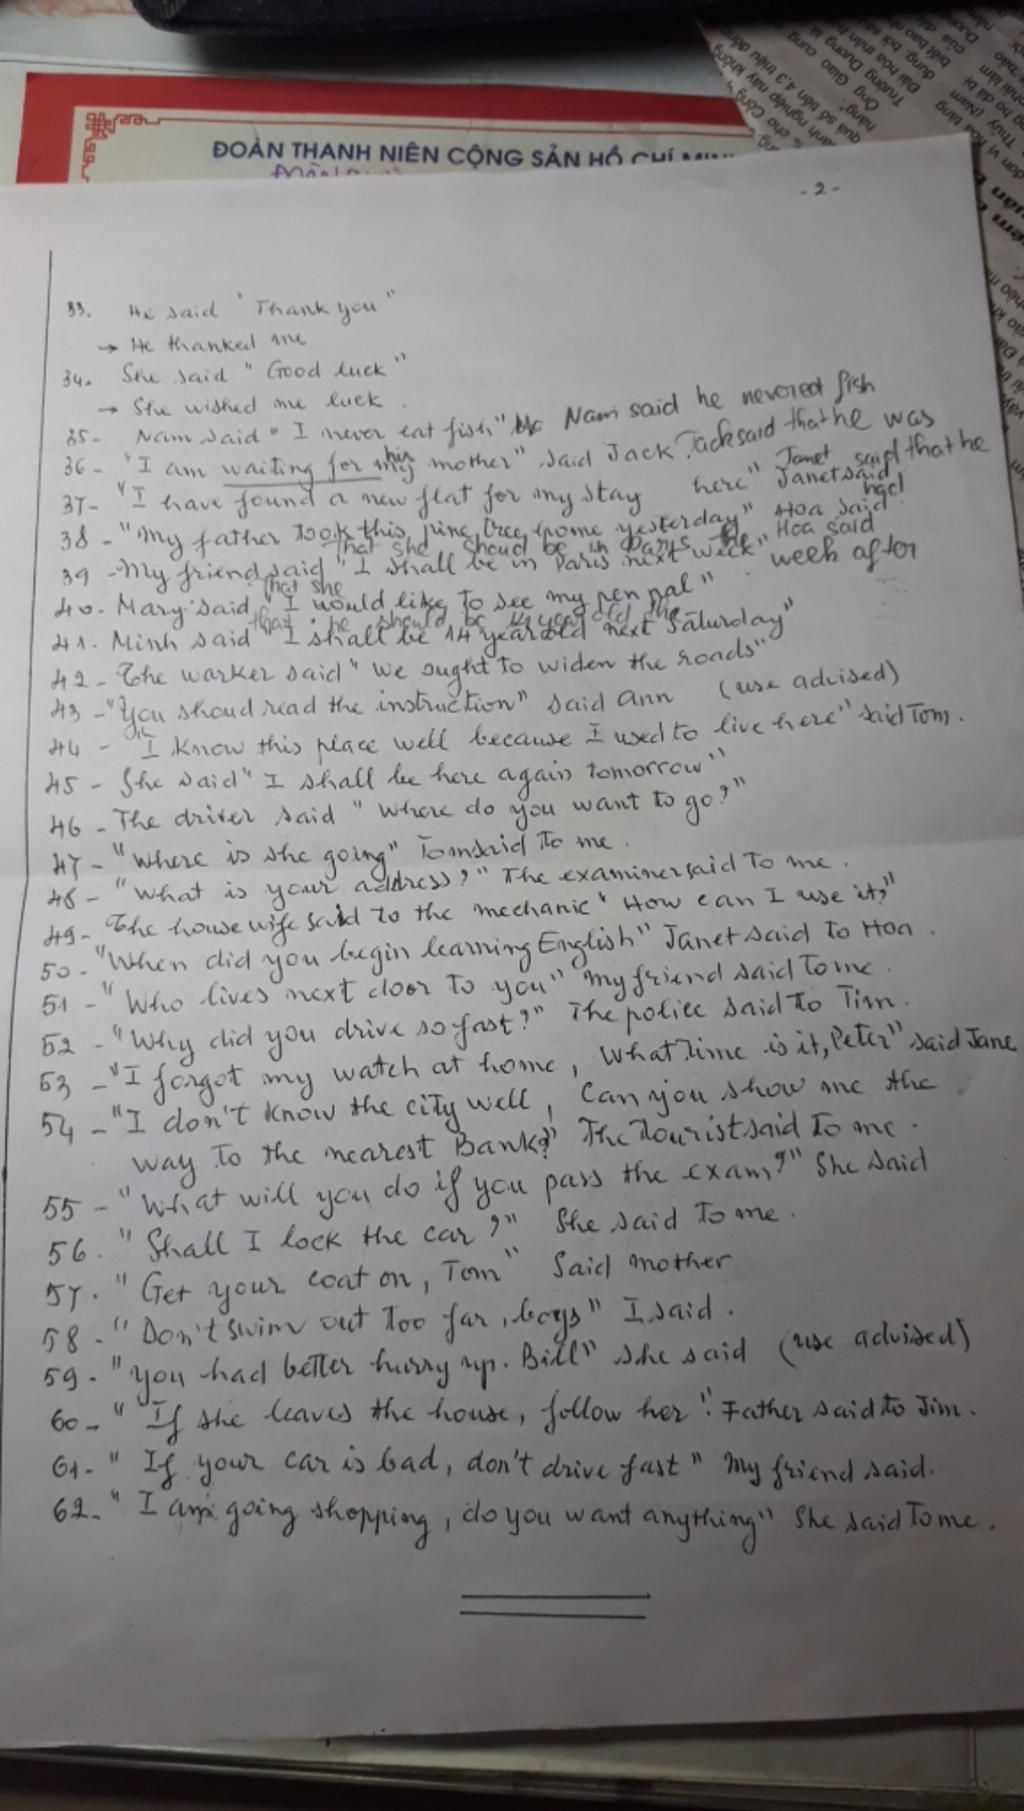 ĐOÀN THANH NIÊN CỘNG SẢN HỒ CHÍ MIN
- 2 -
33. He said "Thank you"
→ He thanked me
34. She said "Good luck"
→ She wished me luck.
35- Nam said "I never eat fish" Nam said he nevered fish
36- "I am waiting for my his mother" said Jack. Jack said that he was
37- "I have found a new flat for my stay here" Janet said. Janet said that he had
38- "My father took this pine tree home yesterday" Hoa said Hoa said
that she shoud be in Paris the week after
39 -My friend said "I shall be in Paris next week"
that she
40- Mary said "I would like to see my pen pal"
that he should be 14 year old the
41. Minh said "I shall be 14 year old next Saturday"
42- The warker said "We ought to widen the roads"
43 -"You shoud read the instruction" said Ann (use advised)
44 - "I know this place well because I used to live here" said Tom.
45 - She said "I shall be here again tomorrow"
46 -The driver said "Where do you want to go?"
47- "Where is she going" Tom said to me.
48- "What is your address?" The examiner said to me.
49- The housewife said to the mechanic "How can I use it?"
50- "When did you begin learning English" Janet said to Hoa.
51- "Who lives next door to you" my friend said to me.
52 - "Why did you drive so fast?" The police said to Tim.
53 -"I forgot my watch at home, What time is it, Peter" said Jane
54 -"I don't know the city well, Can you show me the
way to the nearest Bank?" The tourist said to me.
55 - "What will you do if you pass the exam?" She said
56. "Shall I lock the car?" She said to me.
57. "Get your coat on, Tom" Said mother
58 - "Don't swim out too far, boys" I said.
59- "You had better hurry up. Bill" she said (use advised)
60- "If she leaves the house, follow her". Father said to Jim.
61- "If your car is bad, don't drive fast" my friend said.
62- "I am going shopping, do you want anything" She said to me.